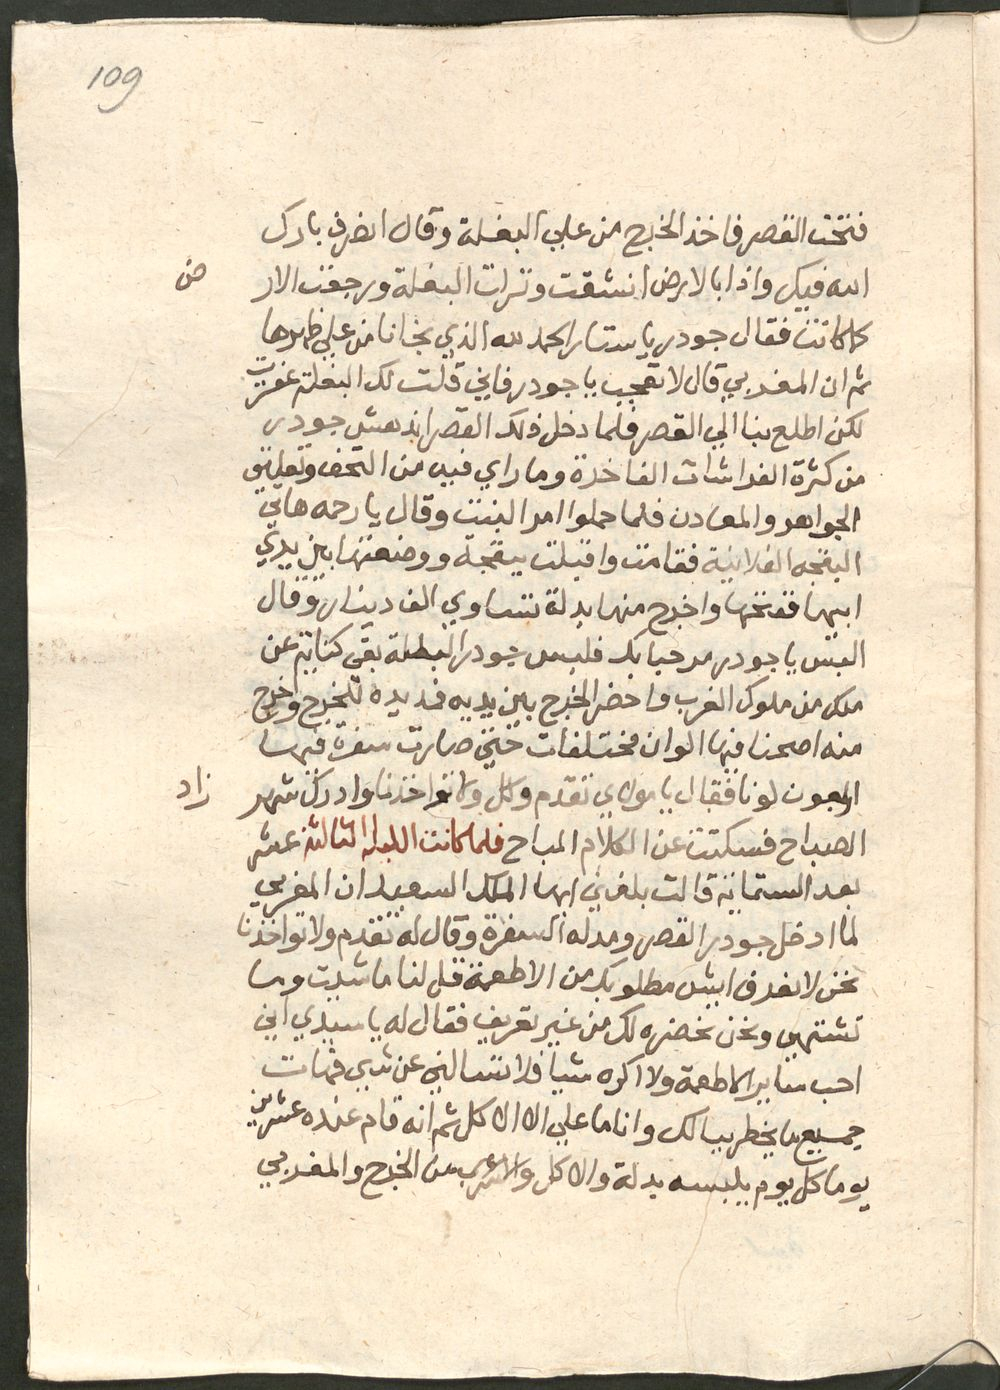 109
فتحت القصر فاخذ الخرج من علي البغلة وقال انصرفي بارك
الله فيكي واذا بالارض انشقت ونزلت البغلة ورجعت الار ض
كما كانت فقال جودر يا ستار الحمد لله الذي نجانا من علي ظهرها
ثم ان المغربي قال لا تعجب يا جودر فاني قلت لك البغلة عفريت
لكن اطلع بنا الي القصر فلما دخل ذلك القصر اندهش جودر
من كثرة الفراشات الفاخرة وما راي فيه من التحف وتعاليق
الجواهر والمعادن فلما جلوا امر البنت وقال يا رحمه هاتي
البقجه الفلانية فقامت واقبلت ببقجة ووضعتها بين يدي
ابيها ففتحها واخرج منها بدلة تساوي الف دينار وقال
البس يا جودر مرحبا بك فلبس جودر البطلة بقي كناية عن
ملك من ملوك الغرب واحضر الخرج بين يديه فمد يده للخرج واخرج
منه اصحنا فيها الوان مختلفات حتي صارت سفرة فيها
اربعون لونا فقال يا مولاي تقدم وكل ولا تواخذنا وادرك شهر زاد
الصباح فسكتت عن الكلام المباح فلما كانت الليلة الثالثة عشر
بعد الستماية قالت بلغني ايها الملك السعيد ان المغربي
لما ادخل جودر القصر ومد له السفرة وقال له تقدم ولا تواخذنا
نحن لا نعرف ايش مطلوبك من الاطعمة قل لنا ما شيت وما
تشتهي ونحن نحضره لك من غير تعريف فقال له يا سيدي اني
احب ساير الاطعمة ولا اكره شيا فلا تسالني عن شي فهات
جميع ما يخطر ببالك وانا ما علي الا الاكل ثم انه قام عنده عشرين
يوما كل يوم يلبسه بدلة والاكل والشرب من الخرج والمغربي